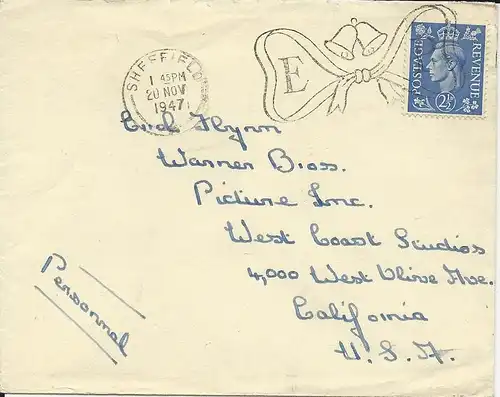 SHEFFIELD
1 45PM
20 NOV
1947
E
POSTAGE
REVENUE
2½D
Errol Flynn
Warner Bros.
Picture Inc.
West Coast Studios
4,000 West Olive Ave.
California
U. S. A.
Personnal